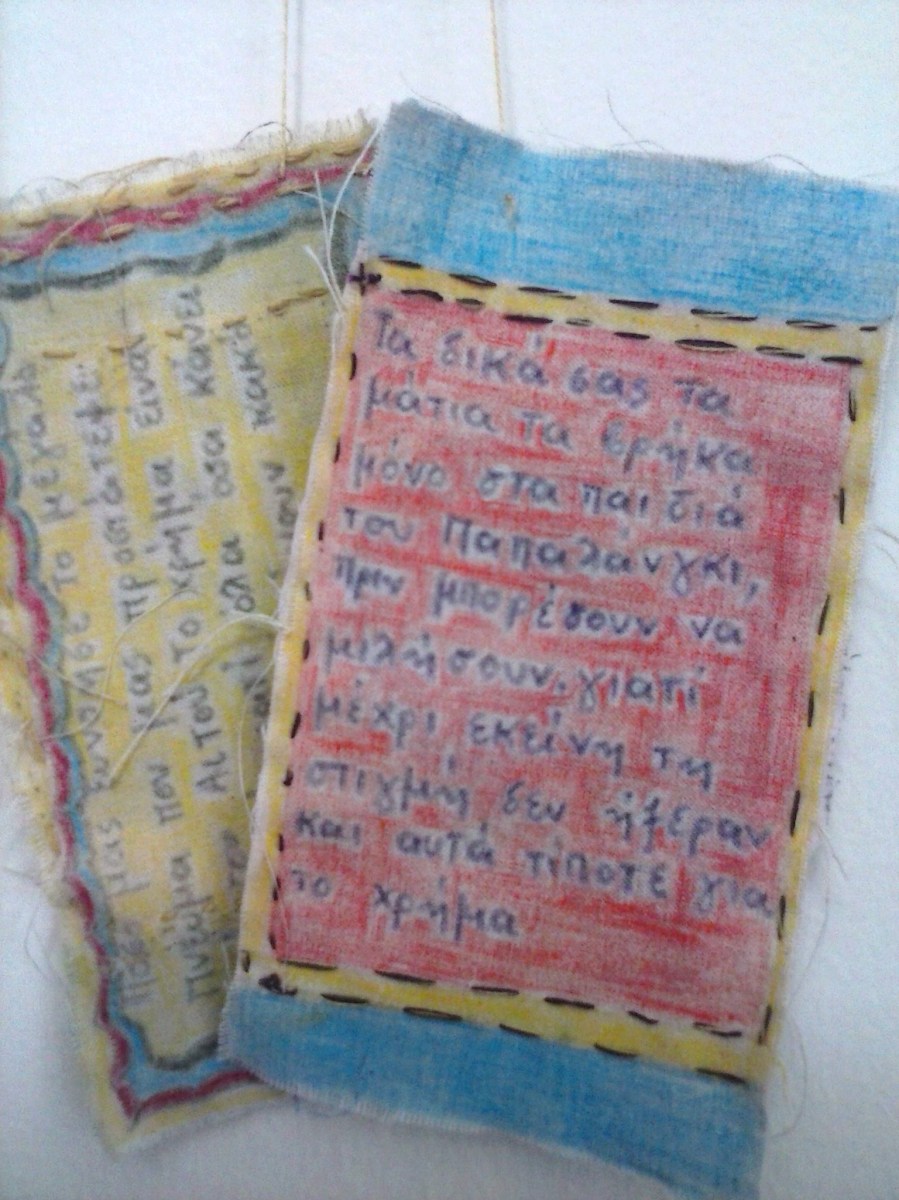 Τα δικά σας τα
μάτια τα βρήκα
μόνο στα παιδιά
του Παπαλάνγκι,
πριν μπορέσουν να
μιλήσουν, γιατί
μέχρι εκείνη τη
στιγμή δεν ήξεραν
και αυτά τίποτε για
το χρήμα
μας το μεγάλο
Πνεύμα που μας προστάτεψε
το χρήμα είναι
όλα όσα κάνει